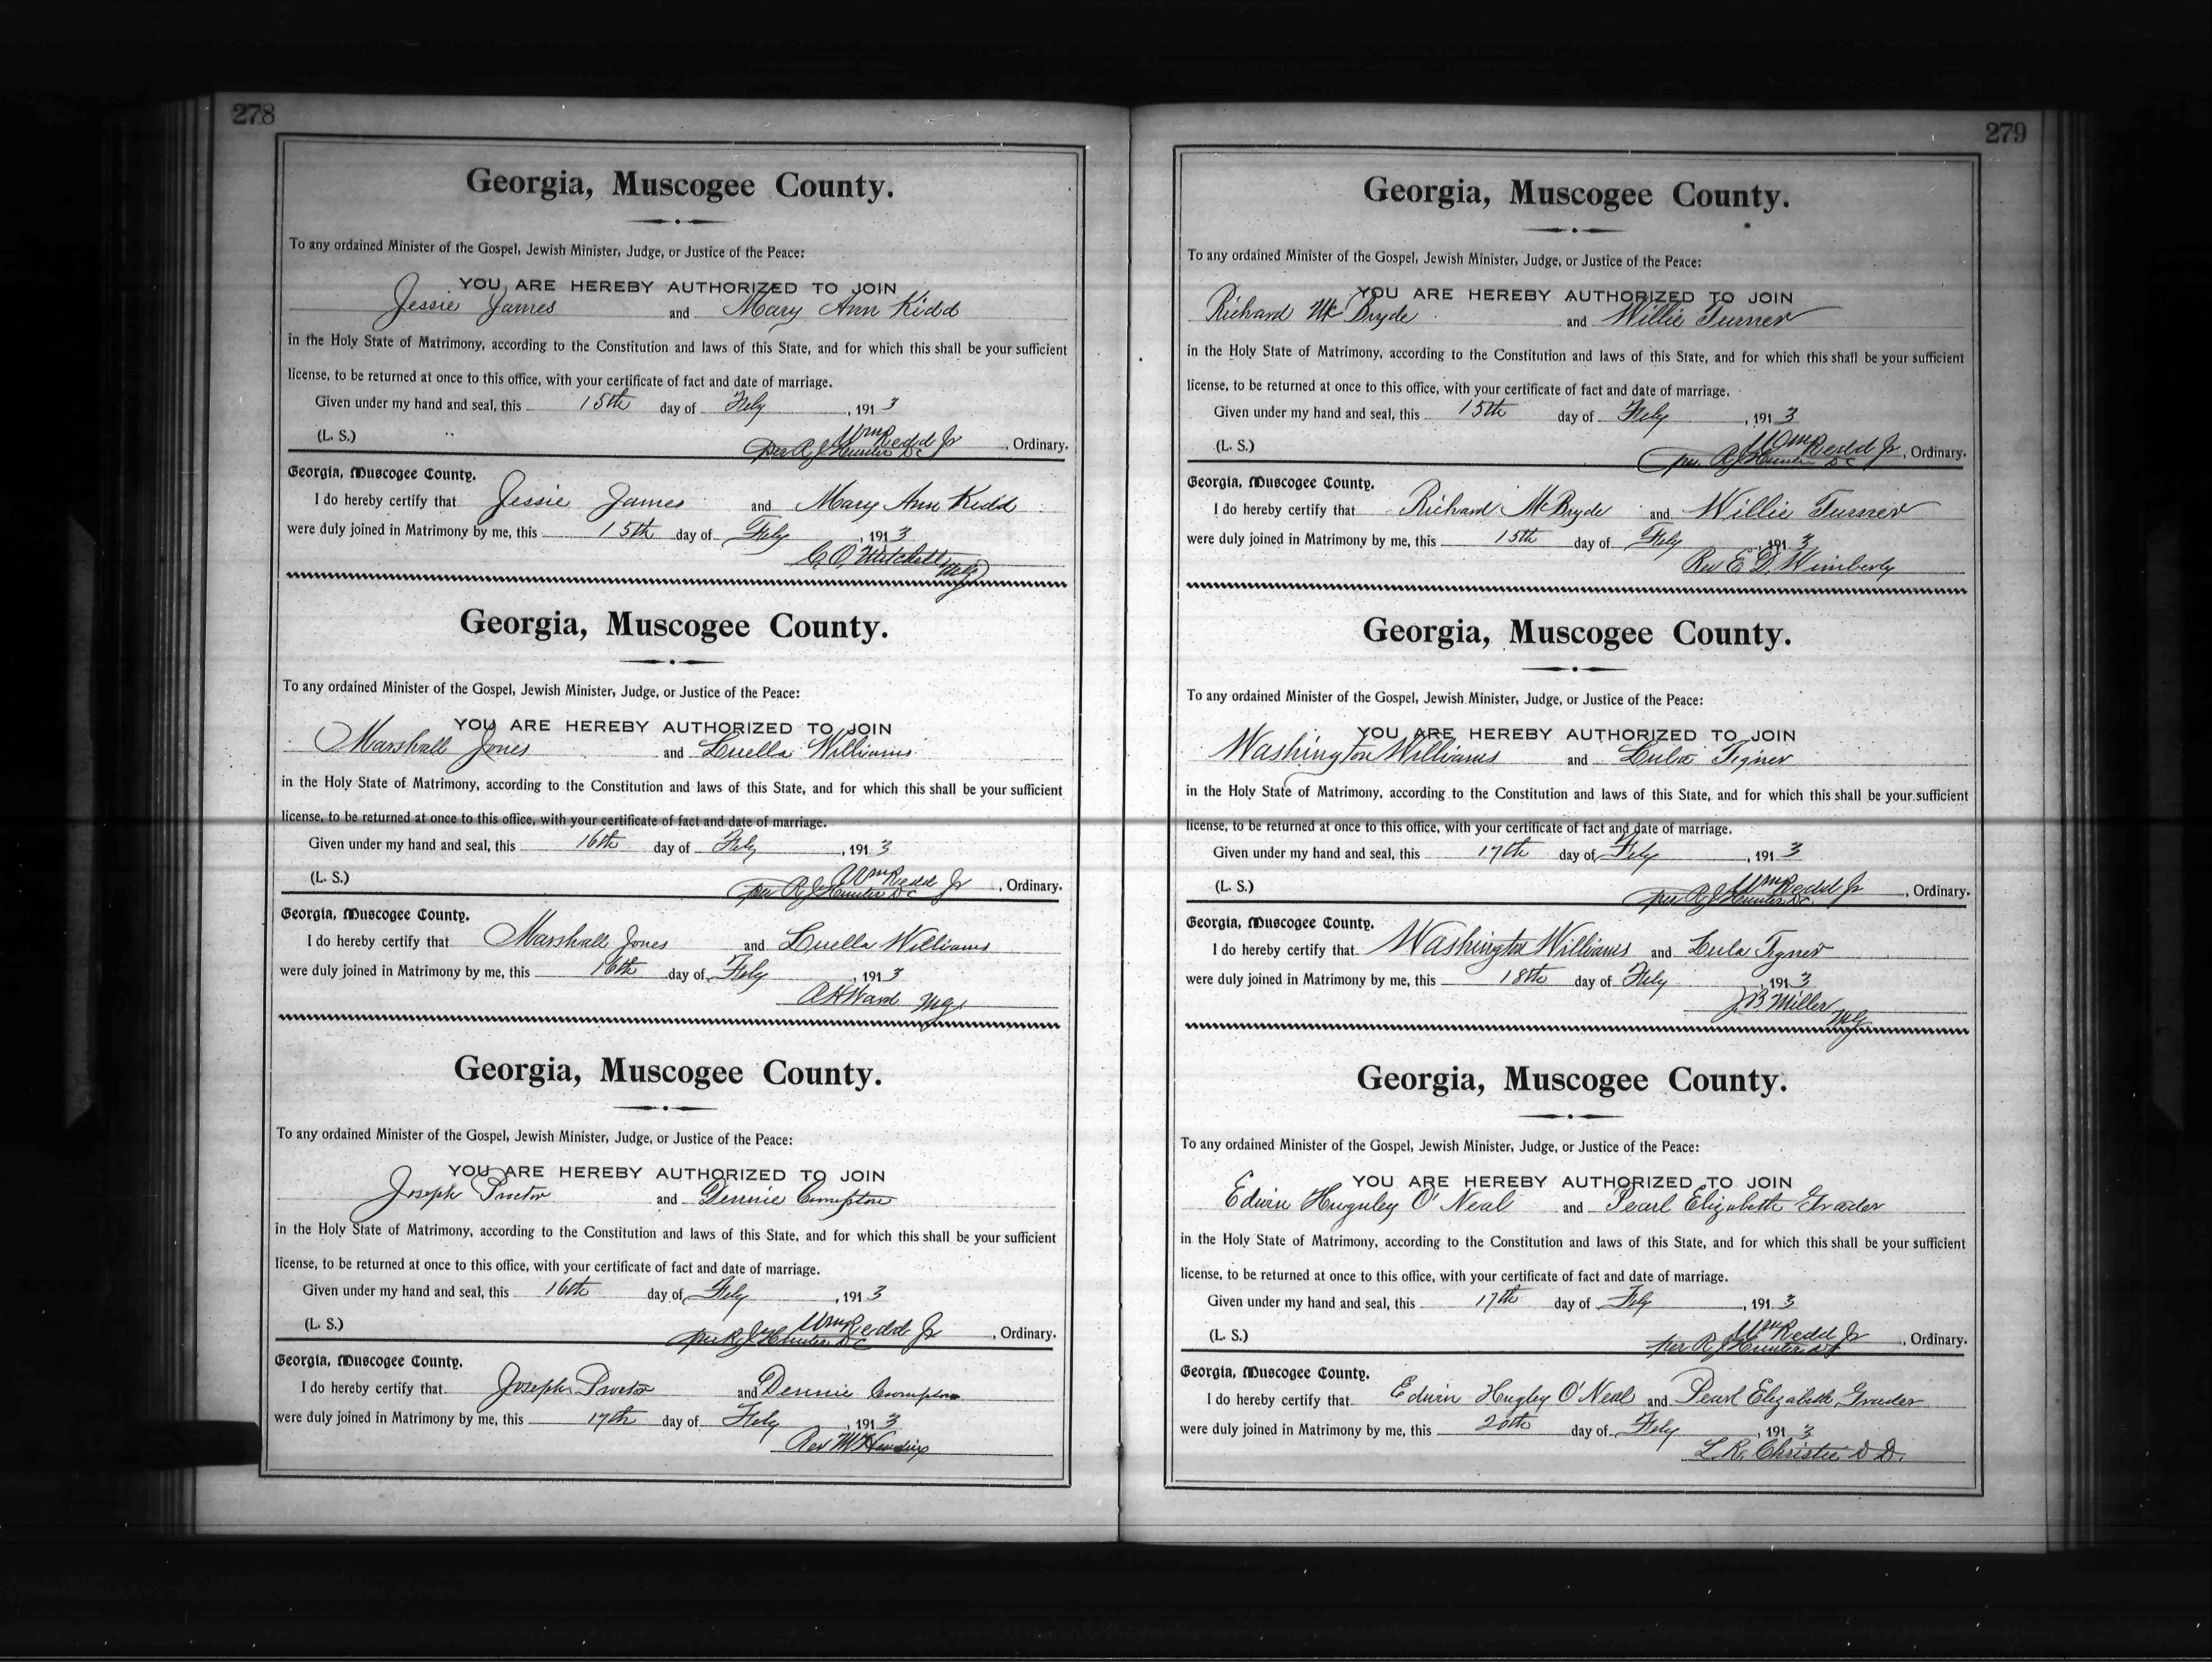 278
Georgia, Muscogee County.
To any ordained Minister of the Gospel, Jewish Minister, Judge, or Justice of the Peace:
YOU ARE HEREBY AUTHORIZED TO JOIN
Jessie James and Mary Ann Kidd
in the Holy State of Matrimony, according to the Constitution and laws of this State, and for which this shall be your sufficient
license, to be returned at once to this office, with your certificate of fact and date of marriage.
Given under my hand and seal, this 15th day of Feby, 1913
(L. S.) Wm Redd Jr, Ordinary.
per R J Hunter D C
Georgia, Muscogee County.
I do hereby certify that Jessie James and Mary Ann Kidd
were duly joined in Matrimony by me, this 15th day of Feby, 1913
Mg
Georgia, Muscogee County.
To any ordained Minister of the Gospel, Jewish Minister, Judge, or Justice of the Peace:
YOU ARE HEREBY AUTHORIZED TO JOIN
Marshall Jones and Luella Williams
in the Holy State of Matrimony, according to the Constitution and laws of this State, and for which this shall be your sufficient
license, to be returned at once to this office, with your certificate of fact and date of marriage.
Given under my hand and seal, this 16th day of Feby, 1913
(L. S.) Wm Redd Jr, Ordinary.
per R J Hunter D C
Georgia, Muscogee County.
I do hereby certify that Marshall Jones and Luella Williams
were duly joined in Matrimony by me, this 16th day of Feby, 1913
Ward Mg
Georgia, Muscogee County.
To any ordained Minister of the Gospel, Jewish Minister, Judge, or Justice of the Peace:
YOU ARE HEREBY AUTHORIZED TO JOIN
Joseph Proctor and Dennie Compton
in the Holy State of Matrimony, according to the Constitution and laws of this State, and for which this shall be your sufficient
license, to be returned at once to this office, with your certificate of fact and date of marriage.
Given under my hand and seal, this 16th day of Feby, 1913
(L. S.) Wm Redd Jr, Ordinary.
per R J Hunter D C
Georgia, Muscogee County.
I do hereby certify that Joseph Proctor and Dennie Compton
were duly joined in Matrimony by me, this 17th day of Feby, 1913
Rev
279
Georgia, Muscogee County.
To any ordained Minister of the Gospel, Jewish Minister, Judge, or Justice of the Peace:
YOU ARE HEREBY AUTHORIZED TO JOIN
Richard McBryde and Willie Turner
in the Holy State of Matrimony, according to the Constitution and laws of this State, and for which this shall be your sufficient
license, to be returned at once to this office, with your certificate of fact and date of marriage.
Given under my hand and seal, this 15th day of Feby, 1913
(L. S.) Wm Redd Jr, Ordinary.
per R J Hunter D C
Georgia, Muscogee County.
I do hereby certify that Richard McBryde and Willie Turner
were duly joined in Matrimony by me, this 15th day of Feby, 1913
Rev E. D. Wimberly
Georgia, Muscogee County.
To any ordained Minister of the Gospel, Jewish Minister, Judge, or Justice of the Peace:
YOU ARE HEREBY AUTHORIZED TO JOIN
Washington Williams and Lula Tigner
in the Holy State of Matrimony, according to the Constitution and laws of this State, and for which this shall be your sufficient
license, to be returned at once to this office, with your certificate of fact and date of marriage.
Given under my hand and seal, this 17th day of Feby, 1913
(L. S.) Wm Redd Jr, Ordinary.
per R J Hunter D C
Georgia, Muscogee County.
I do hereby certify that Washington Williams and Lula Tigner
were duly joined in Matrimony by me, this 18th day of Feby, 1913
J B Miller Mg
Georgia, Muscogee County.
To any ordained Minister of the Gospel, Jewish Minister, Judge, or Justice of the Peace:
YOU ARE HEREBY AUTHORIZED TO JOIN
Edwin Huguley O'Neal and Pearl Elizabeth
in the Holy State of Matrimony, according to the Constitution and laws of this State, and for which this shall be your sufficient
license, to be returned at once to this office, with your certificate of fact and date of marriage.
Given under my hand and seal, this 17th day of Feby, 1913
(L. S.) Wm Redd Jr, Ordinary.
per R J Hunter
Georgia, Muscogee County.
I do hereby certify that Edwin Hugley O'Neal and Pearl Elizabeth
were duly joined in Matrimony by me, this 20th day of Feby, 1913
L. R. Christie D. D.